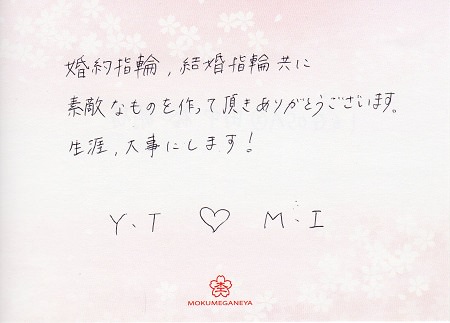 婚約指輪,結婚指輪共に
素敵なものを作って頂きありがとうございます。
生涯,大事にします!
Y.T ♡ M.I
MOKUMEGANEYA